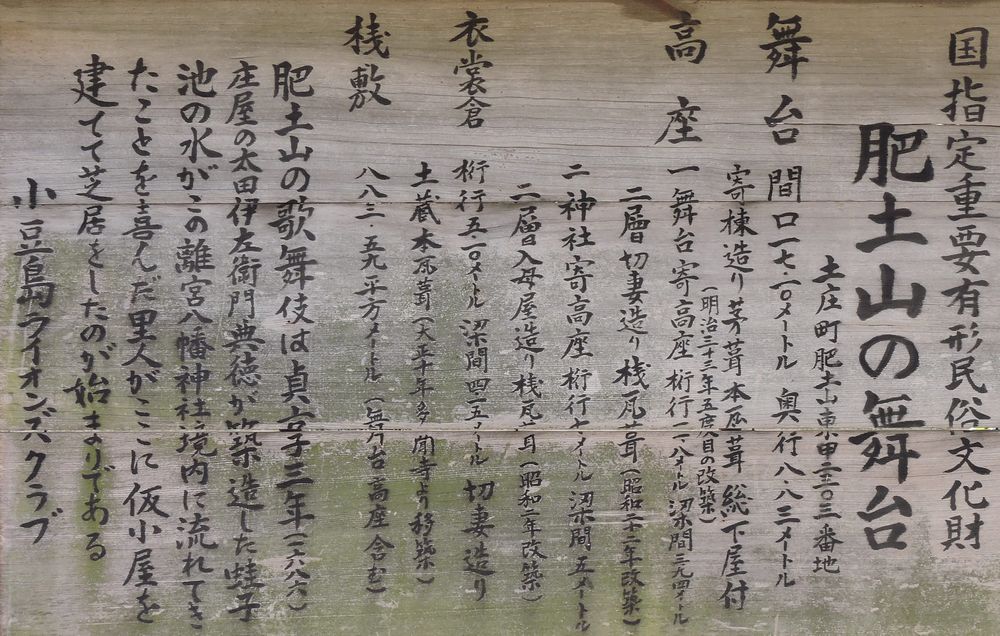 国指定重要有形民俗文化財
肥土山の舞台
土庄町肥土山東甲二三〇三番地
舞台 間口一七・一〇メートル 奥行八・八三メートル
寄棟造り茅葺本瓦葺 総下屋付
(明治三十三年五度目の改築)
高座 一 舞台寄高座 桁行一・八メートル 梁間三・九四メートル
二層切妻造り桟瓦葺(昭和二十二年改築)
二 神社寄高座 桁行七メートル 梁間五メートル
二層入母屋造り桟瓦葺(昭和二年改築)
衣裳倉 桁行五・一〇メートル 梁間四・一五メートル 切妻造り
土蔵本瓦葺(大正十年多聞寺より移築)
桟敷 八八三・五九平方メートル(舞台高座含む)
肥土山の歌舞伎は貞享三年(一六八六)
庄屋の太田伊左衛門典徳が築造した蛙子
池の水がこの離宮八幡神社境内に流れてき
たことを喜んだ里人がここに仮小屋を
建てて芝居をしたのが始まりである
小豆島ライオンズクラブ